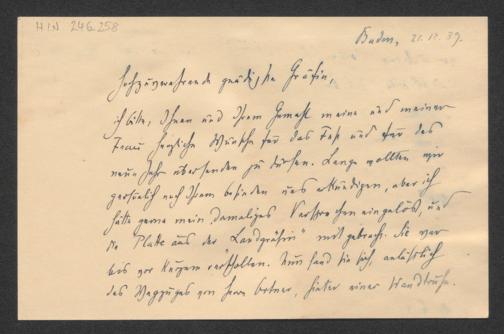 HIN 246.258
Baden, 21.12.39.
Hochzuverehrende gnädigste Gräfin,
ich bitte, Ihnen und Ihrem Gemahl meine und meiner
Frau herzliche Wünsche für das Fest und für das
neue Jahr übersenden zu dürfen. Lange wollten wir
persönlich nach Ihrem Befinden uns erkundigen, aber ich
hätte gerne mein damaliges Versprechen eingelöst, und
die Platte aus der „Landgräfin" mitgebracht. Sie war
bis vor Kurzem verschollen. Nun fand sie sich, anlässlich
des Wegzuges von Herrn Ortner, hinter einer Wandtruhe.